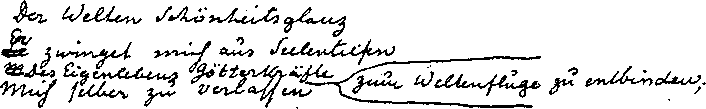 Der Welten Schönheitsglanz
Er zwinget mich aus Seelentiefen
Des Eigenlebens Götterkräfte zum Weltenfluge zu entbinden;
Mich selber zu verlassen